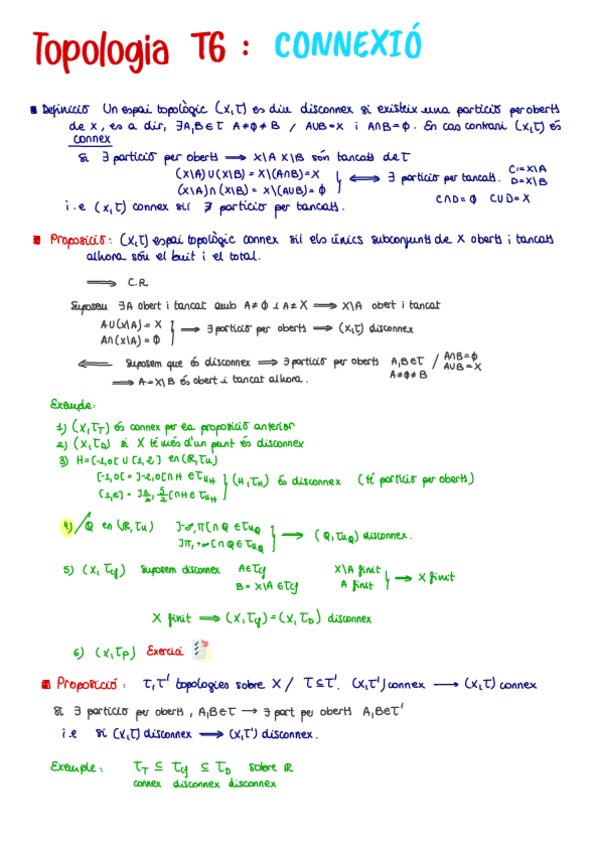 Topologia T6 : CONNEXIÓ
Definició Un espai topològic (X,τ) es diu disconnex si existeix una partició per oberts
de X, es a dir, ∃A,B∈τ A≠∅≠B / A∪B=X i A∩B=∅. En cas contrari (X,τ) és
connex
Si ∃ partició per oberts ⟶ X\A X\B són tancats de τ
(X\A)∪(X\B) = X\(A∩B)=X
(X\A)∩(X\B) = X\(A∪B)=∅
⟺ ∃ partició per tancats. C:=X\A D=X\B
C∩D=∅ C∪D=X
i.e (X,τ) connex sii ∄ partició per tancats.
Proposició: (X,τ) espai topològic connex sii els únics subconjunts de X oberts i tancats
alhora són el buit i el total.
⟹ C.R
Suposem ∃A obert i tancat amb A≠∅ i A≠X ⟹ X\A obert i tancat
A∪(X\A) = X
A∩(X\A) = ∅
⟶ ∃ partició per oberts ⟶ (X,τ) disconnex
⟸ Suposem que és disconnex ⟹ ∃ partició per oberts A,B∈τ / A∩B=∅ A∪B=X
A≠∅≠B
⟹ A=X\B és obert i tancat alhora.
Exemple:
1) (X,τT) és connex per la proposició anterior
2) (X,τD) si X té més d'un punt és disconnex
3) H=[-1,0[ ∪ [1,2] en (ℝ,τu)
[-1,0[ = ]-2,0[∩H ∈τuH
[1,2] = ]1/2, 5/2[∩H∈τuH
(H,τH) és disconnex (té partició per oberts)
4) ℚ en (ℝ,τu) ]-∞,π[∩ℚ∈τuℚ
]π,+∞[∩ℚ∈τuℚ
⟶ (ℚ,τuℚ) disconnex.
5) (X,τcf) Suposem disconnex A∈τcf X\A finit
B=X\A∈τcf A finit
⟶ X finit
X finit ⟹ (X,τcf)=(X,τD) disconnex
6) (X,τp) Exercici
Proposició: τ,τ' topologies sobre X / τ⊆τ'. (X,τ') connex ⟶ (X,τ) connex
Si ∃ partició per oberts, A,B∈τ ⟶ ∃ part per oberts A,B∈τ'
i.e si (X,τ) disconnex ⟶ (X,τ') disconnex.
Exemple: τT ⊆ τcf ⊆ τD sobre ℝ
connex disconnex disconnex